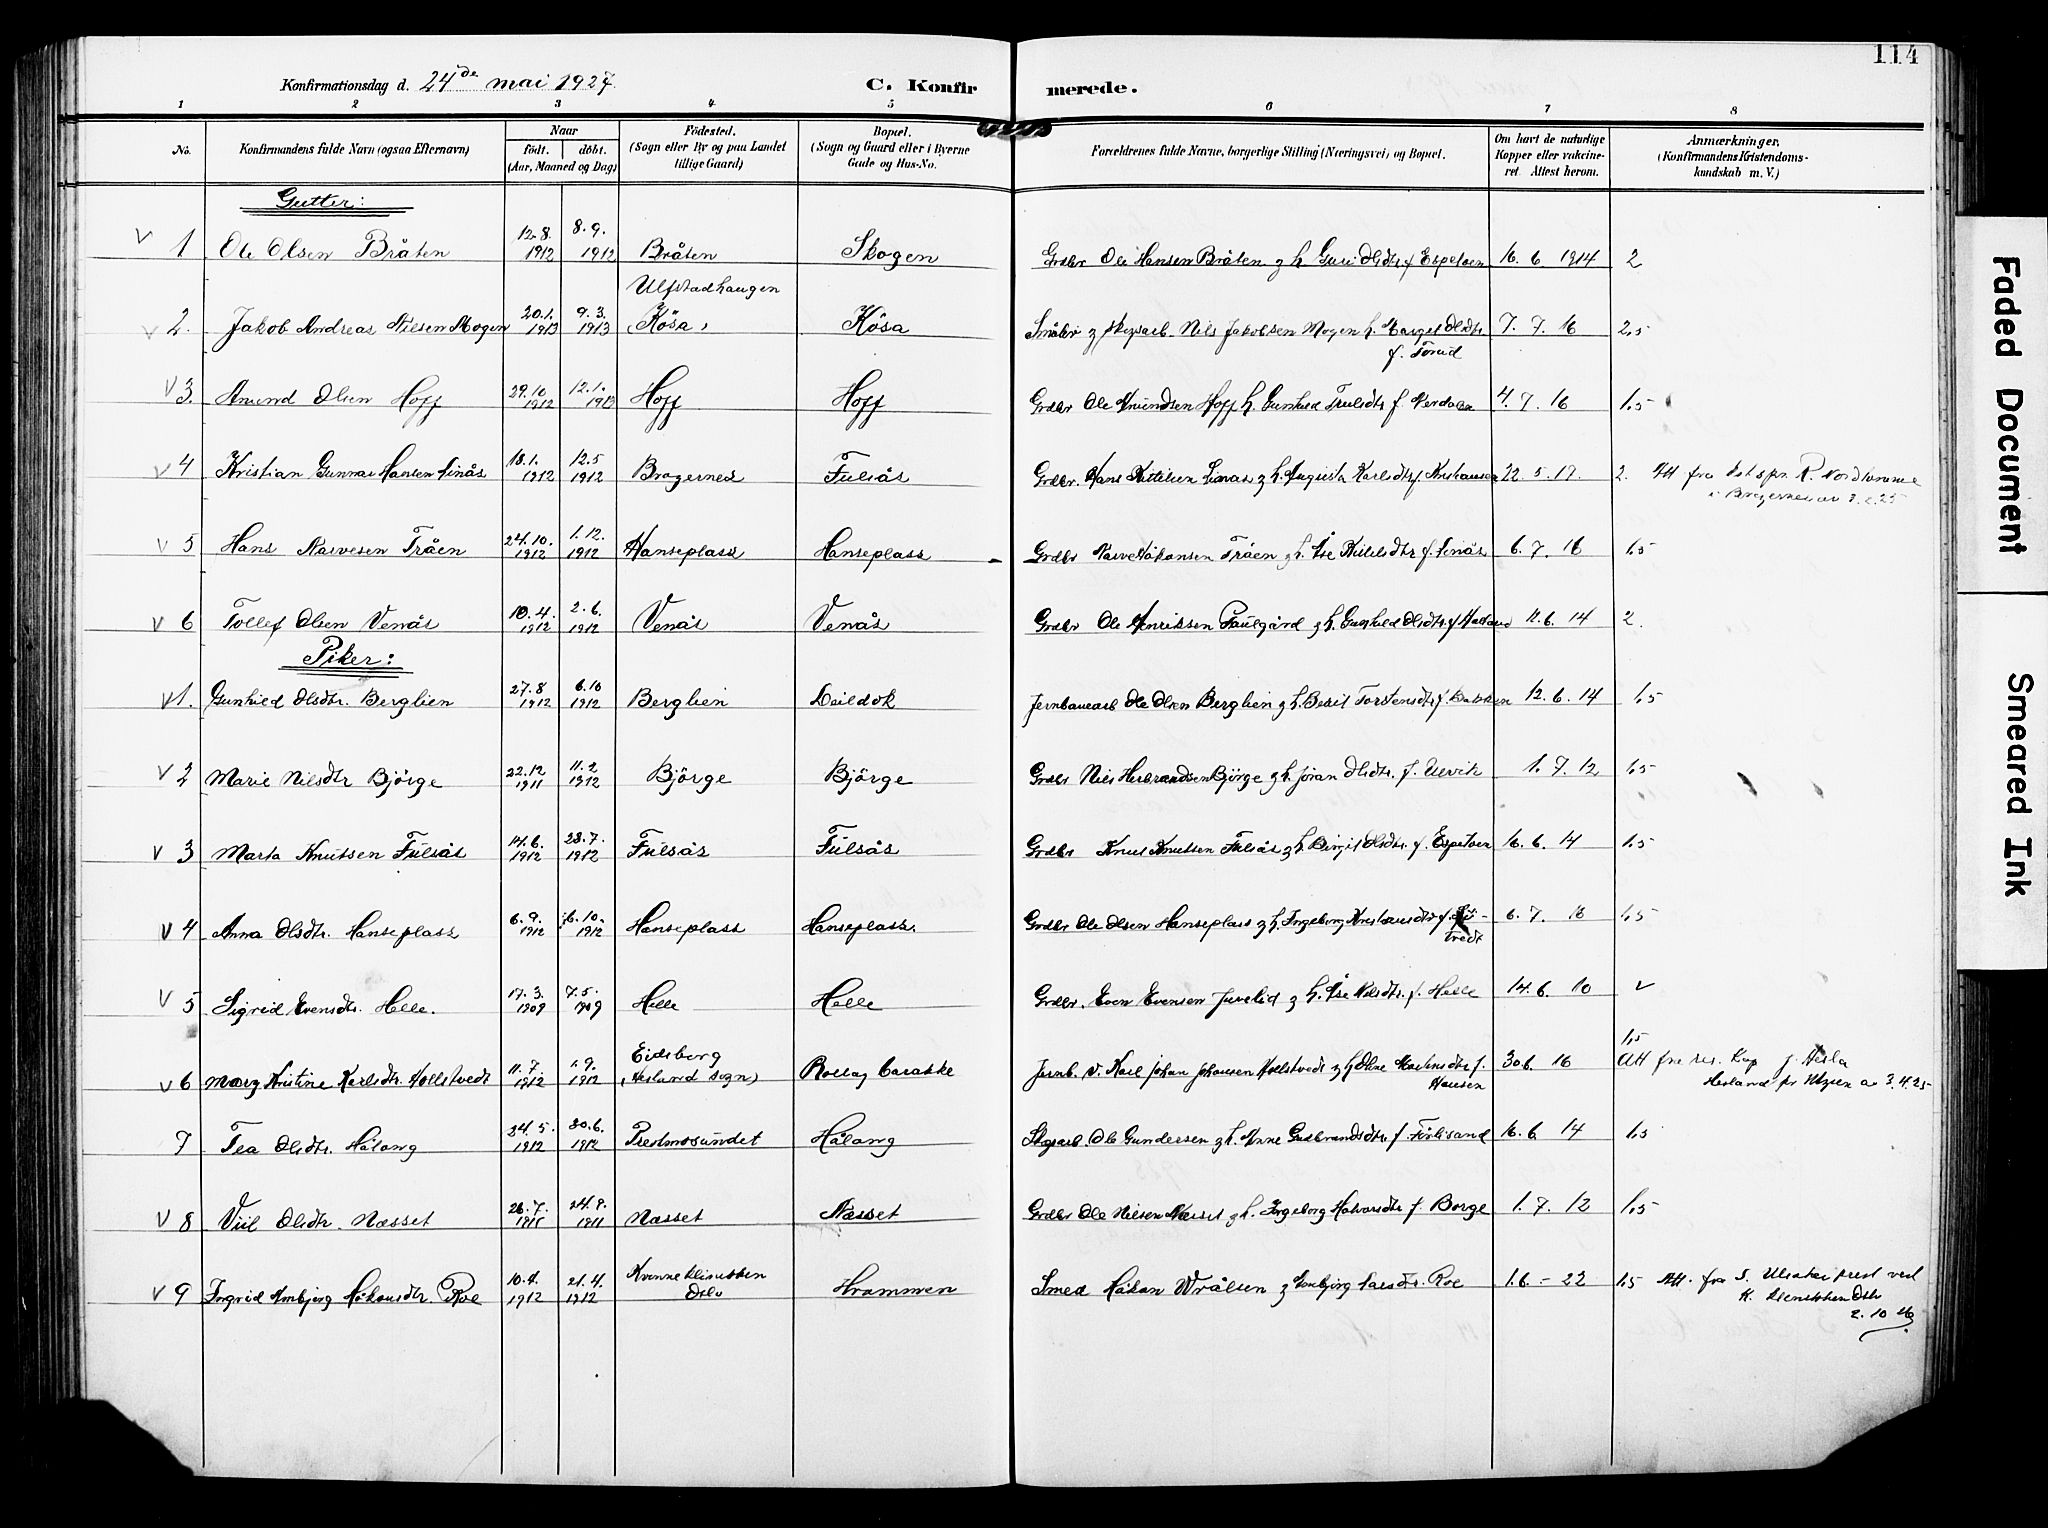 114
Konfirmationsdag d. 24de mai 1927
C. Konfirmerede.
1 2 3 4 5 6 7 8
No.
Konfirmandens fulde Navn (ogsaa Efternavn)
Naar
født. døbt.
(Aar, Maaned og Dag)
Fødested.
(Sogn eller By og paa Landet
tillige Gaard)
Bopæl.
(Sogn og Gaard eller i Byerne
Gade og Hus-No.
Forældrenes fulde Navne, borgerlige Stilling (Næringsvei) og Bopæl.
Om havt de naturlige
Kopper eller vakcine-
ret. Attest herom.
Anmærkninger.
(Konfirmandens Kristendoms-
kundskab m. V.)
Gutter:
V 1 Ole Olsen Bråten 12.8. 1912 8.9. 1912 Bråten Skogen Grdbr Ole Hansen Bråten og h. Guri Olsdtr f Espetven 16. 6. 1914 2
V 2. Jakob Andreas Nilsen Mogen 20.1. 1913 9.3. 1913 Ulfstadhaugen (Kösa) Kösa Småbr og skogsarb. Nils Jakobsen Mogen h. Margit Olsdtr 7. 7. 16 2,5
V 3. Amund Olsen Hoff 29.10. 1912 12.1. 1913 Hoff Hoff Grdbr Ole Amundsen Hoff h. Gunhild Trulsdtr f. 4. 7. 16 1,5
V 4 Kristian Gunnar Hansen Linås 18.1. 1912 12.5 1912 Bragernes Fulsås Grdbr. Hans Kittilsen Linås og h. Augusta Karlsdtr f. 22. 5. 17. 2. Att fra
i Bragernes av 3.2.25
V 5 Hans Narvesen Tråen 24.10. 1912 1.12. 1912 Hanseplass Hanseplass Grdbr Narve Håkonsen Tråen og h. Åse Kittilsdtr f. Linås 6. 7. 16 1,5
V 6 Tollef Olsen Venås 10.4. 1912 2.6. 1912 Venås Venås Grdbr Ole Henriksen Paulgård og h. Gunhild Olsdtr. f 11. 6. 14 2.
Piker:
V 1. Gunhild Olsdtr. Berglien 27.8 1912 6.10 1912 Berglien Deildok Jernbanearb Ole Olsen Berglien og h. Berit Torstensdtr f. Bakken 12. 6. 14 1,5
V 2 Marie Nilsdtr Björge 22.12 1911 11.2. 1912 Björge Björge Grdbr Nils Herbrandsen Björge og h. Jöran Olsdtr. f. Ulvik 1. 7. 12 1,5
V 3 Marta Knutsen Fulsås 14.6. 1912 28.7. 1912 Fulsås Fulsås Grdbr Knut Knutsen Fulsås og h. Birgit Olsdtr. f. Espetven 16. 6. 14 1,5
V 4 Anna Olsdtr. Hanseplass 6.9. 1912 6.10. 1912 Hanseplass Hanseplass. Grdbr Ole Olsen Hanseplass og h. Ingeborg Kristensdtr f. 6. 7. 16 1,5
V 5 Sigrid Evensdtr. Helle. 17.3. 1909 7.5. 1909 Helle Helle Grdbr. Even Evensen Juvelid og h. Åse Nilsdtr. f. Helle 14. 6. 10 V
V 6 Marg Kristine Karlsdtr. Hollstvedt 11.7. 1912 1.9. 1912 Eidsborg (Hesland sogn) Rollag barakke Jernb. v. Karl Johan Johansen Hollstvedt og h. Oline Martinsdtr f. Hansen 30.6. 16 1,5
Att fra res. Kap J. Hesla
av 3.4.25
7 Tea Olsdtr. Hålang 24.5. 1912 30.6. 1912 Prestmosundet Hålang Skogsarb. Ole Gundersen og h. Anne Gulbrandsdtr. f. 16. 6. 14 1,5
V 8 Viil Olsdtr. Næsset 26.7. 1911 24.9. 1911 Næsset Næsset Grdbr Ole Nilsen Næsset og h. Ingeborg Halvorsdtr f. Borge 1. 7. 12 1,5
V 9 Ingrid Ambjørg Håkonsdtr. Roe 10.4. 1912 21.4. 1912 Kvinneklinikken Oslo Hrammen Smed Håkon Wrålsen og Ambjørg Larsdtr. Roe 1.6. - 22 1,5 Att. fra S. prest ved
K. klinikken Oslo
2. 10 26
Faded Document
Smeared Ink